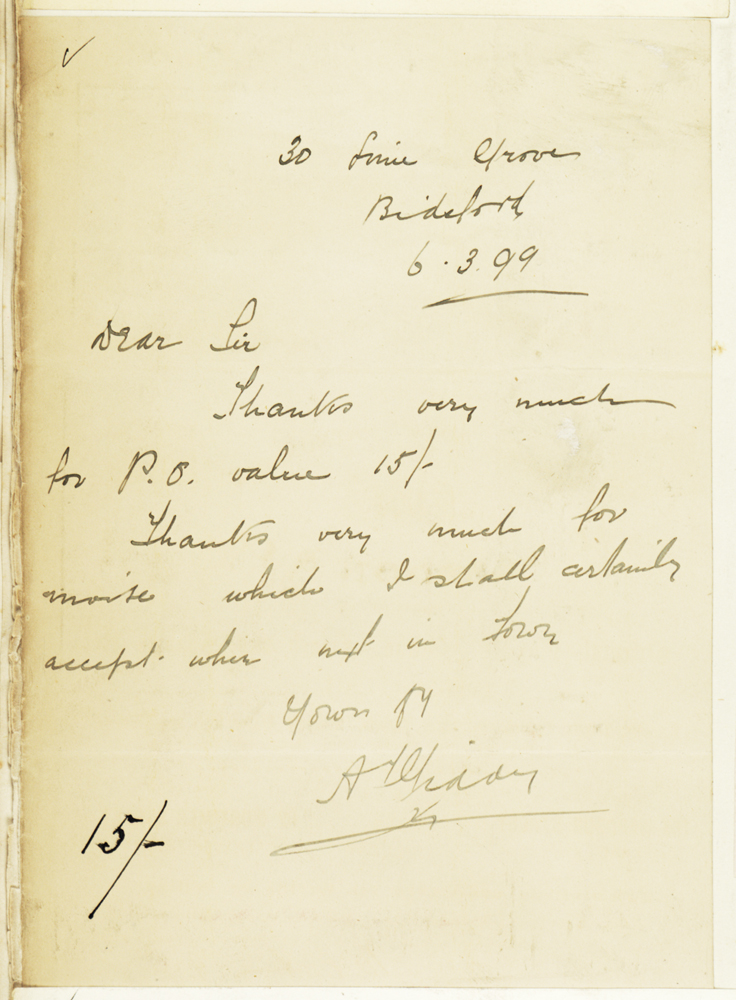 30 Lime Grove
Bideford
6.3.99
Dear Sir
Thanks very much
for P.O. value 15/-
Thanks very much for
invite which I shall certainly
accept when next in Town
Yours fy
15/-